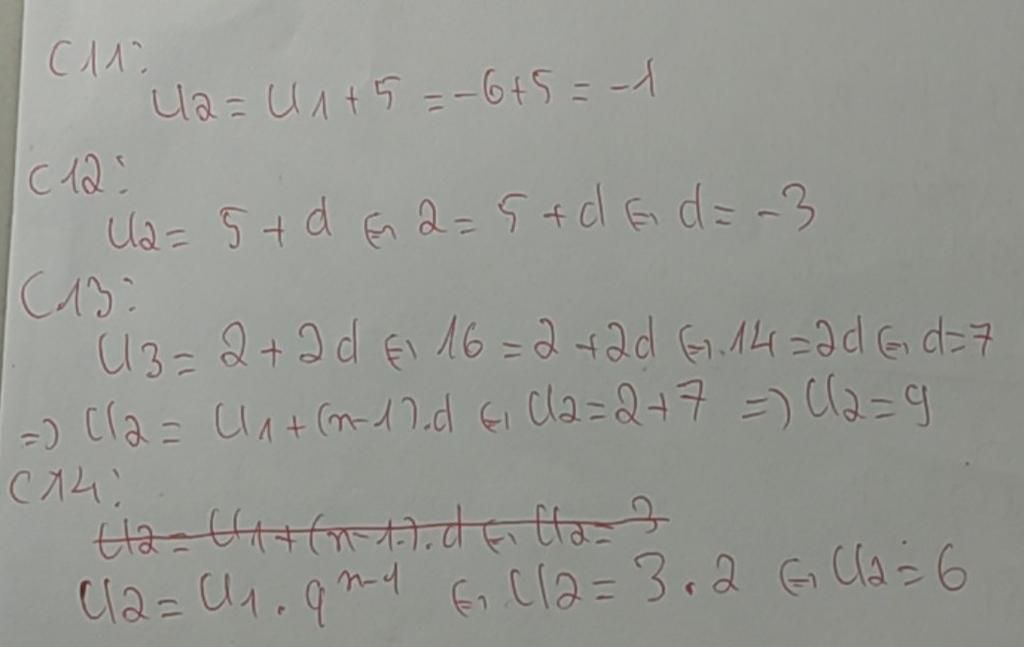 C11:
U2 = U1 + 5 = -6 + 5 = -1
C12:
U2 = 5 + d ⇔ 2 = 5 + d ⇔ d = -3
C13:
U3 = 2 + 2d ⇔ 16 = 2 + 2d ⇔ 14 = 2d ⇔ d = 7
=> U2 = U1 + (n-1).d ⇔ U2 = 2 + 7 => U2 = 9
C14:
U2 = U1 + (n-1).d ⇔ U2 = 3
U2 = U1 . q^n-1 ⇔ U2 = 3 . 2 ⇔ U2 = 6